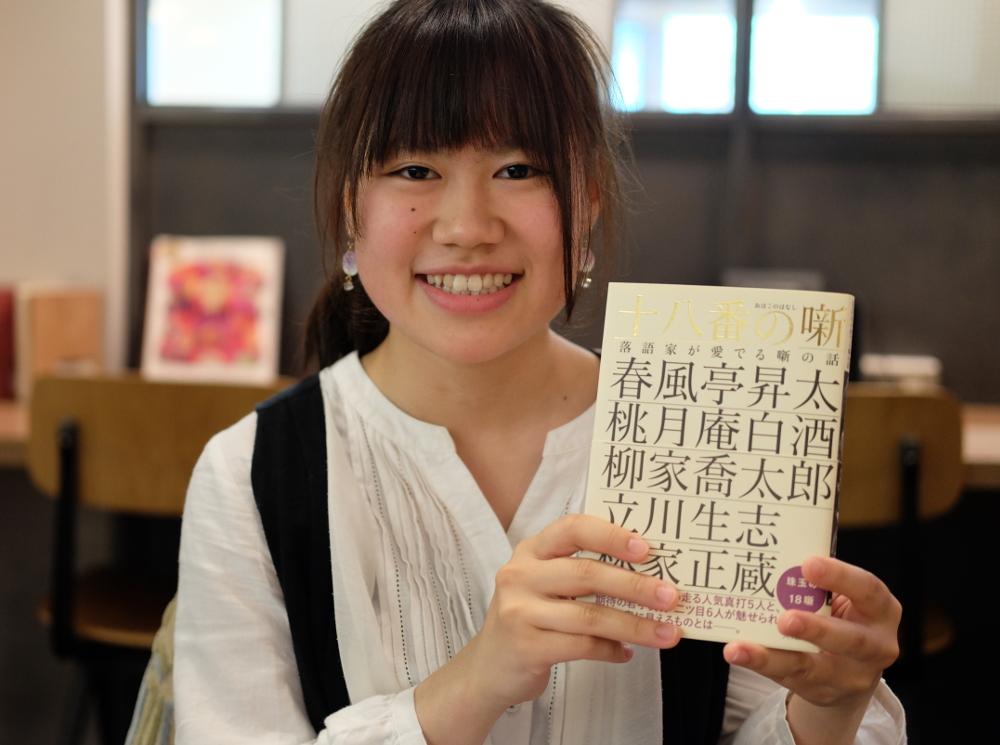 おはこのはなし
十八番の噺
落語家が愛でる噺の話
春風亭昇太
桃月庵白酒
柳家喬太郎
立川生志
家正蔵
珠玉の
18噺
走る人気真打5人と、
二ツ目6人が魅せられ
見えるものとは